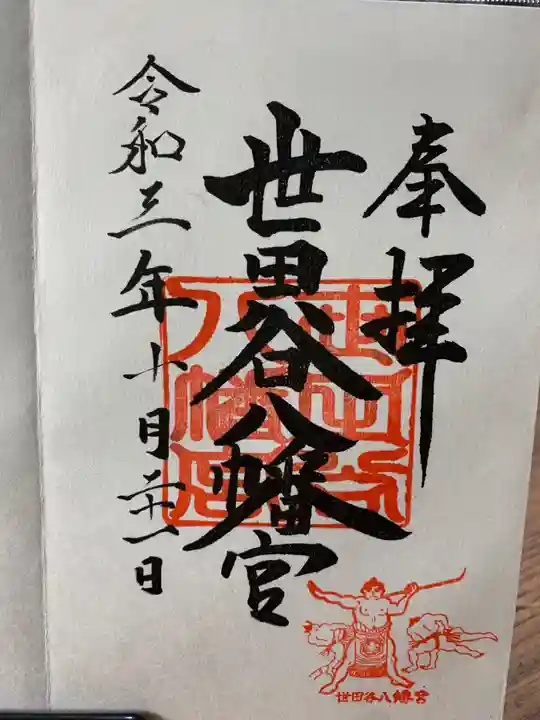 奉拝
世田谷八幡宮
令和三年十月二十一日
世田谷
八幡宮
世田谷八幡宮